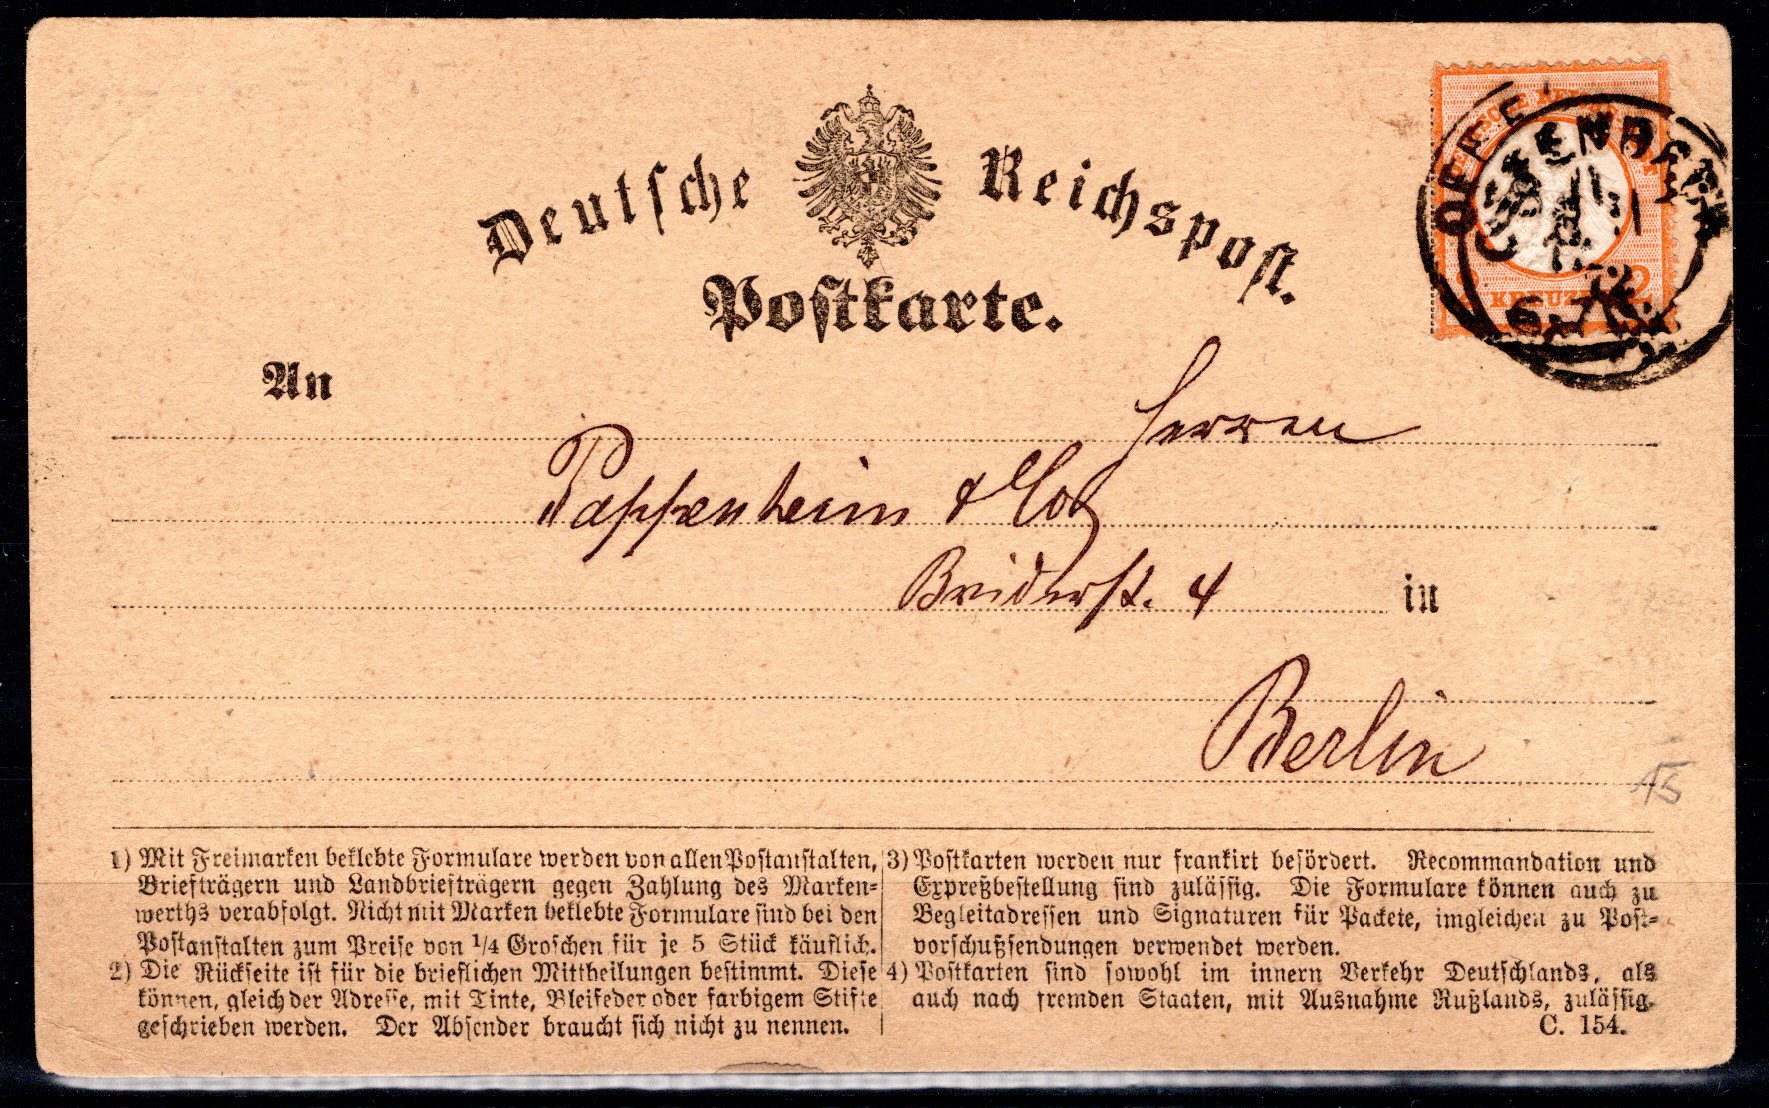 Deutsche Reichspost.
Postkarte.
An
Herren
Pappenheim & Co
4 in
Berlin
15
1) Mit Freimarken beklebte Formulare werden von allen Postanstalten,
Briefträgern und Landbriefträgern gegen Zahlung des Marken=
werths verabfolgt. Nicht mit Marken beklebte Formulare sind bei den
Postanstalten zum Preise von 1/4 Groschen für je 5 Stück käuflich.
2) Die Rückseite ist für die brieflichen Mittheilungen bestimmt. Diese
können, gleich der Adresse, mit Tinte, Bleifeder oder farbigem Stifte
geschrieben werden. Der Absender braucht sich nicht zu nennen.
3) Postkarten werden nur frankirt befördert. Recommandation und
Expreßbestellung sind zulässig. Die Formulare können auch zu
Begleitadressen und Signaturen für Packete, imgleichen zu Post=
vorschußsendungen verwendet werden.
4) Postkarten sind sowohl im innern Verkehr Deutschlands, als
auch nach fremden Staaten, mit Ausnahme Rußlands, zulässig.
C. 154.